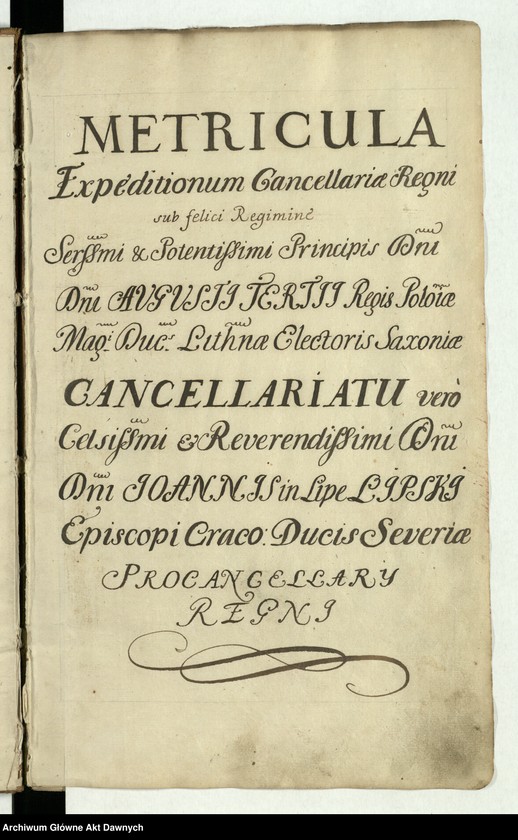 METRICULA
Expéditionum Cancellariæ Regni
sub felici Regimine
Serſſmi & Potentiſſimi Principis Dni
Dni AUGUSTI TERTII Regis Polonæ
Mag: Duc: Lithnæ Electoris Saxoniæ
CANCELLARIATU verò
Celsiſſmi & Reverendiſſimi Dni
Dni IOANNIS in Lipe LIPSKI
Episcopi Craco: Ducis Severiæ
PROCANCELLARY
REGNI
Archiwum Główne Akt Dawnych